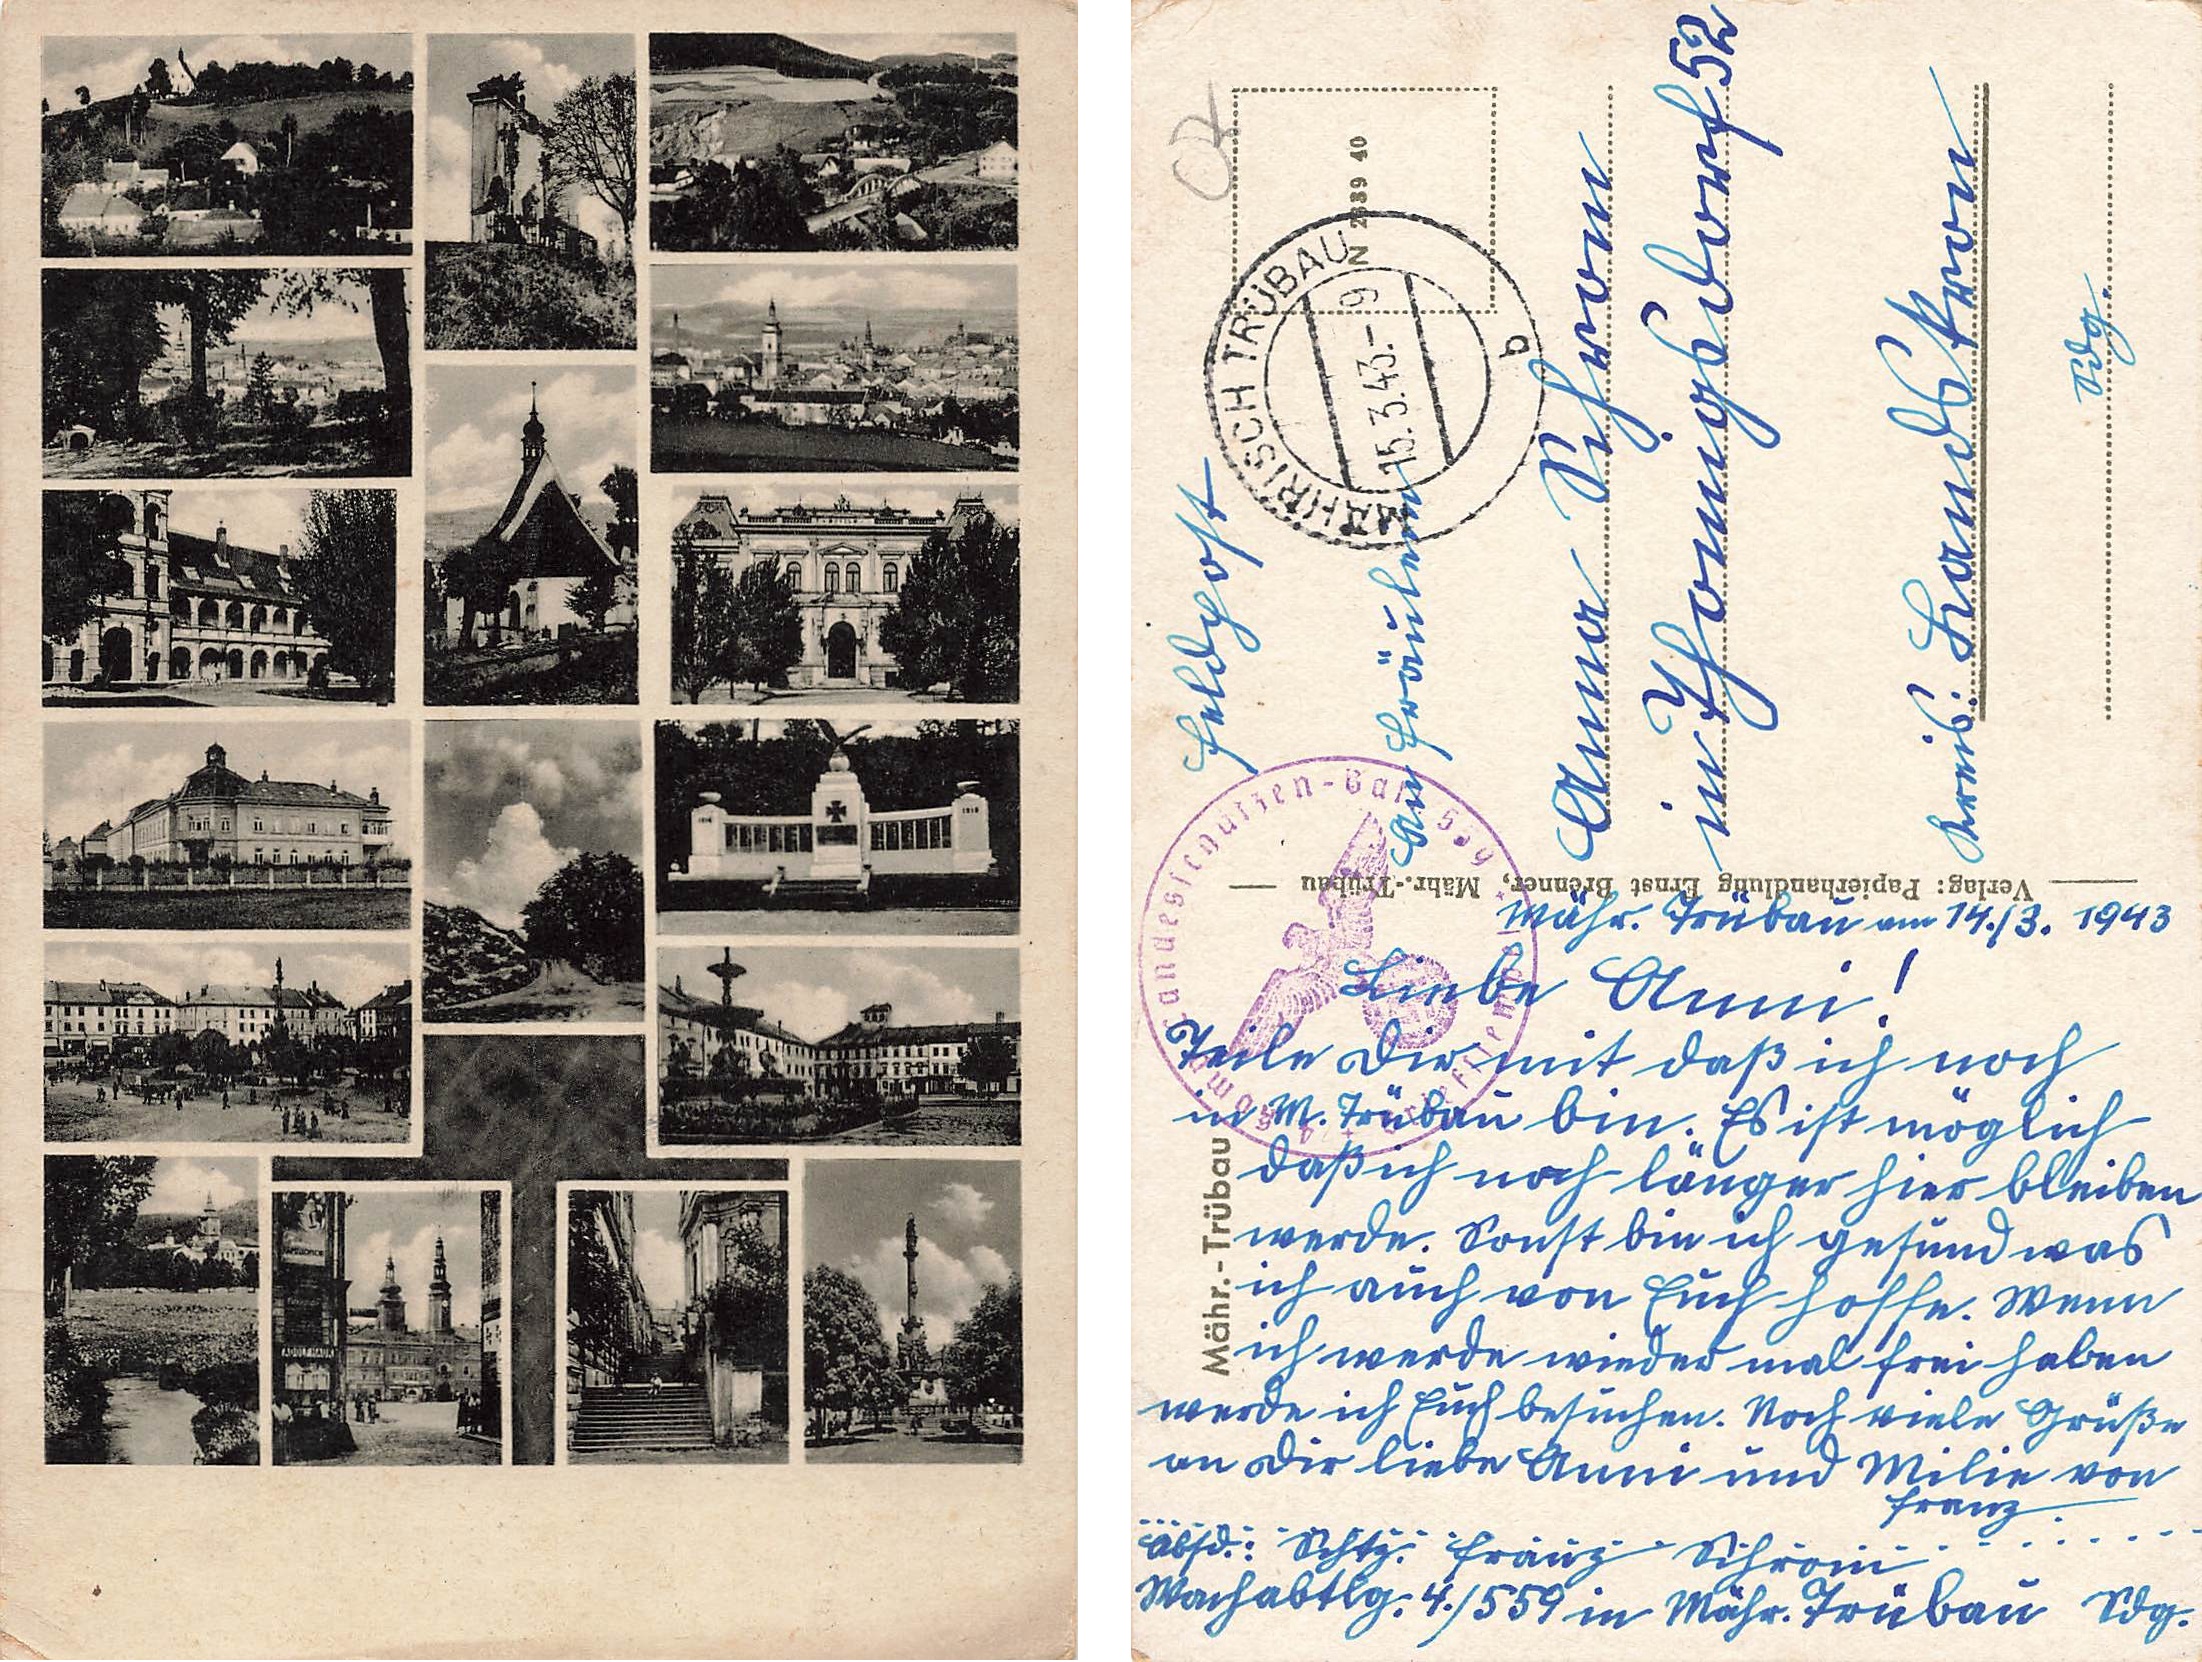 ADOLF HAUK
Feldpost
N 2889 40
MÄHRISCH TRÜBAU
15.3.43.-9
b
An Fräulein
Anna Schrom
in Thomigsdorf 52
Kreis: Landskron
Sdg.
Landesschützen-Bat. 559
Verlag: Papierhandlung Ernst Brenner, Mähr.-Trübau
Mähr.-Trübau
Mähr. Trübau am 14./3. 1943
Liebe Anni!
Teile Dir mit daß ich noch
in M. Trübau bin. Es ist möglich
daß ich noch länger hier bleiben
werde. Sonst bin ich gesund was
ich auch von Euch hoffe. Wenn
ich werde wieder mal frei haben
werde ich Euch besuchen. Noch viele Grüße
an Dir liebe Anni und Milie von
Franz.
Absd.: Schtz. Franz Schrom
Wachabtlg. 4./559 in Mähr. Trübau Sdg.